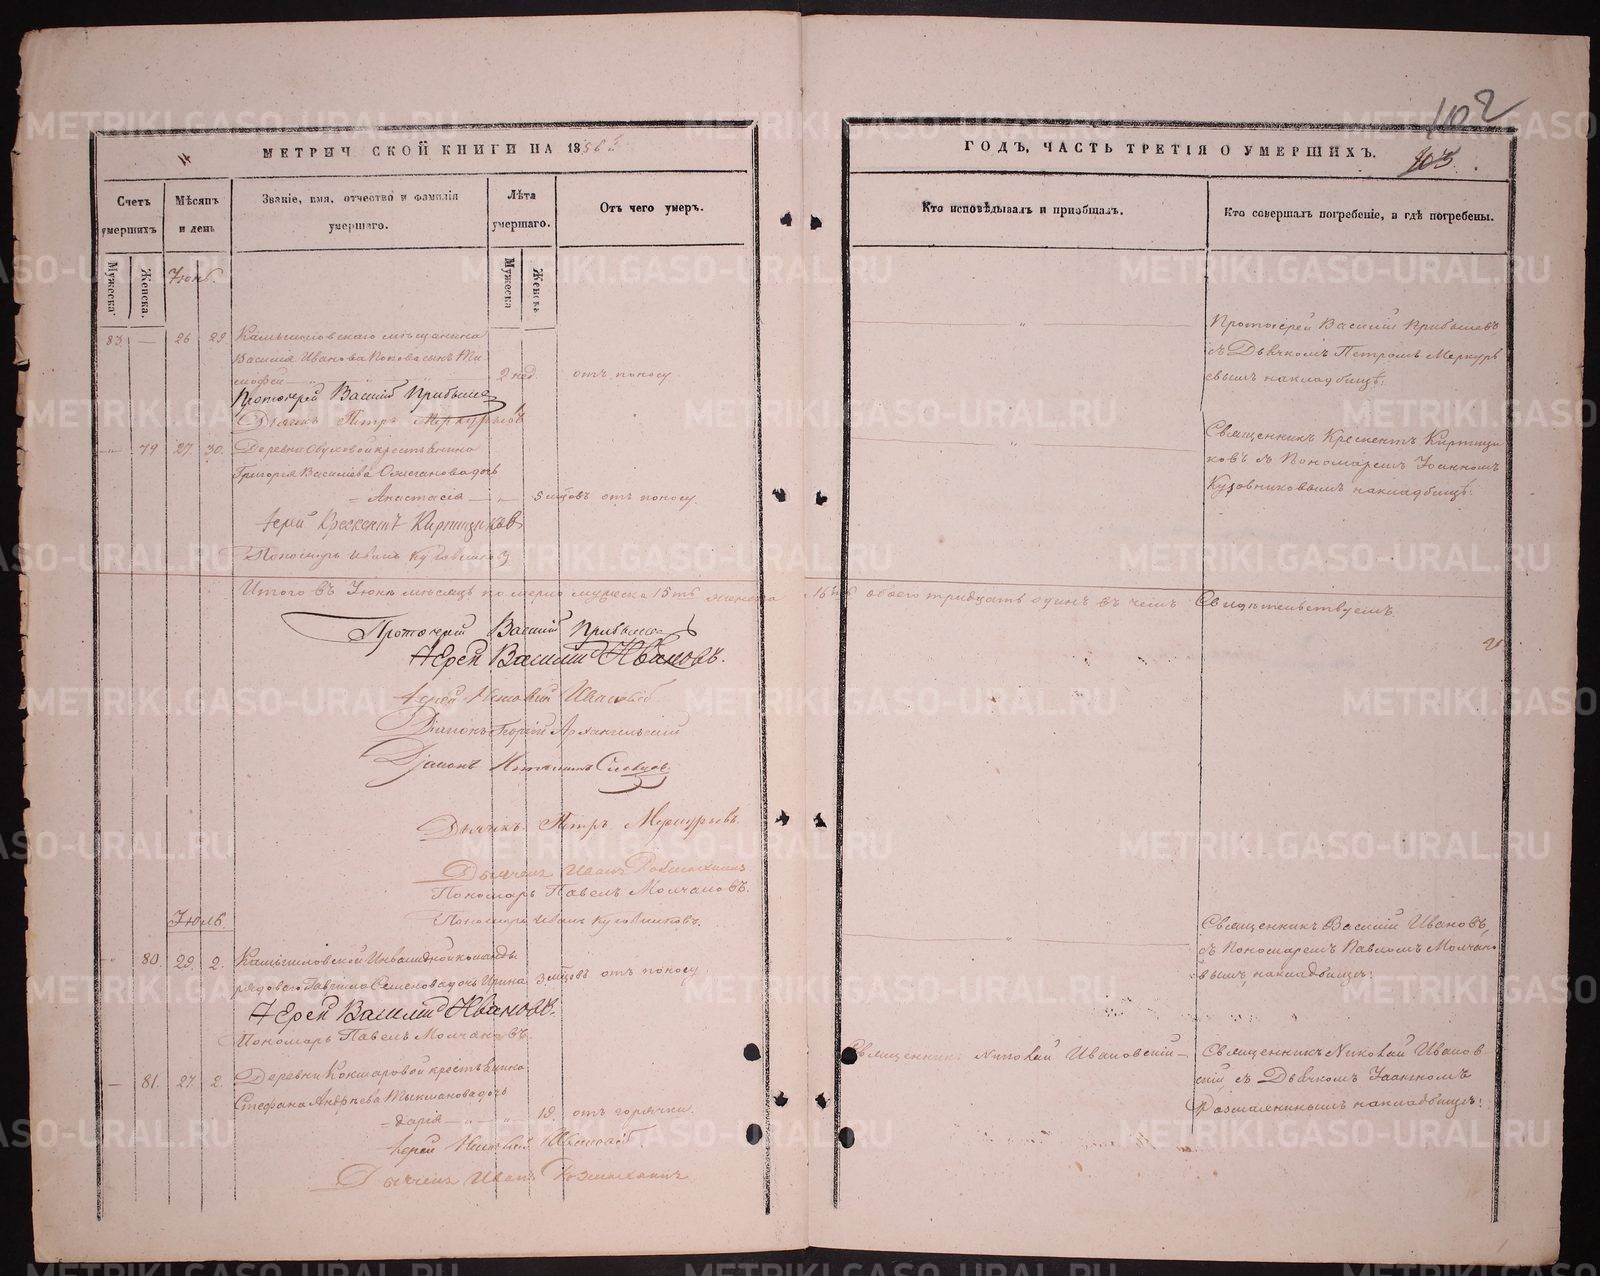 102
МЕТРИЧЕСКОЙ КНИГИ НА 186
ГОДЪ, ЧАСТЬ ТРЕТІЯ О УМЕРШИХЪ.
103.
Счетъ умершихъ
Мѣсяцъ и день
Званіе, имя, отчество и фамилія умершаго.
Лѣта умершаго.
Отъ чего умеръ.
Кто исповѣдывалъ и пріобщалъ.
Кто совершалъ погребеніе, и гдѣ погребены.
Мужеска.
Женска.
Мужеска
Женска
Іюнь.
83. — 26 29 Камышловскаго мѣщанина
Василія Иванова Попова сынъ Ти
мофей 2 нед. отъ поносу.
Протоіерей Василій Прибылев
Дьячекъ Петръ Меркурьевъ
Протоіерей Василій Прибылевъ
съ Дьячкомъ Петромъ Меркурь
евымъ на кладбищѣ.
— 79 27. 30. Деревни Обуховой крестьянина
Григорія Васильева дочь
Анастасія 5 мцовъ отъ поносу.
Іерей Крескентъ Киртици ковъ
Пономарь Иванъ Кузовников
Священникъ Крескентъ Киртици
ковъ съ Пономаремъ Іоанномъ
Кузовниковымъ на кладбищѣ.
Итого въ Іюнѣ мѣсяцѣ померло мужеска 15ть женска 16ть обоего тридцать одинъ въ чемъ Свидѣтельствуемъ.
Протоіерей Василій Прибылев
Іерей Василій Ивановъ.
Іерей Николай
Діаконъ Георгій Архангельскій
Діаконъ Словцов
Дьячекъ Петръ Меркурьевъ.
Дьячекъ Иванъ
Пономарь Павелъ Молчановъ.
Пономарь Иванъ Кузовниковъ.
Іюль.
80. 29. 2. Камышловской Инвалидной команды
рядоваго Семенова дочь Ирина 3 мцовъ отъ поносу.
Іерей Василій Ивановъ.
Пономарь Павелъ Молчановъ.
Священникъ Василій Ивановъ,
съ Пономаремъ Павломъ Молчано
вымъ, на кладбищѣ.
— 81. 27. 2. Деревни Кокшаровой крестьянина
Стефана Андрѣева дочь
Дарія 18 отъ горячки.
Іерей Николай
Дьячекъ Иванъ
Священникъ Николай Ивановскій —
Священникъ Николай Иванов
скій, съ Дьячкомъ Іоанномъ
на кладбищѣ.
METRIKI.GASO-URAL.RU